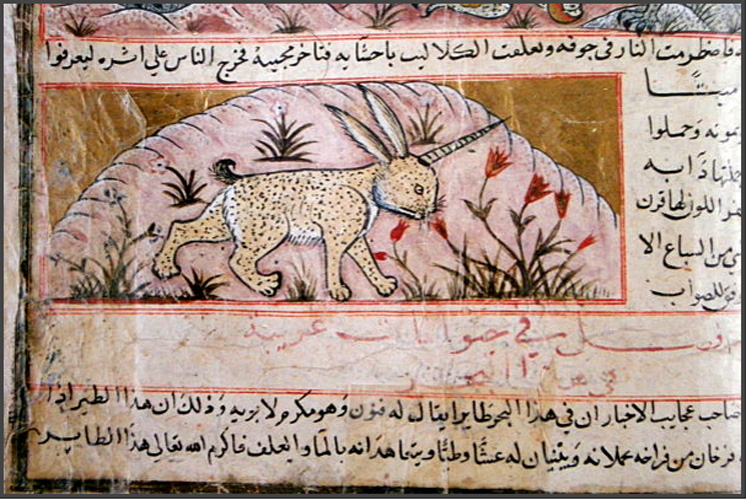 فاضطرمت النار في جوفه وتعلقت الكلاليب باحشايه فتاخر مجيبه فخرج الناس على اثره ليعرفوا
ميتا
وحملوا
دابه
اللون لها قرن
من السباع الا
للصواب
فصل في حيوانات غريبة
في هذا البحر
صاحب عجايب الاخبار ان في هذا البحر طايرا يقال له فنون وهو مكرم لابويه وذلك ان هذا الطير اذا
فرخان من فراخه يحملانه ويبنيان له عشا وطيا ويتعاهدانه بالما والعلف فاكرم الله تعالى هذا الطاير